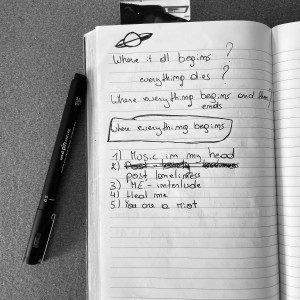 Where it all begins ?
everything dies ?
Where everything begins and then
ends
Where everything begins
1) Music in my head
2) Post - lonely loneliness
post loneliness
3) ME - interlude
4) Heal me
5) You are a riot